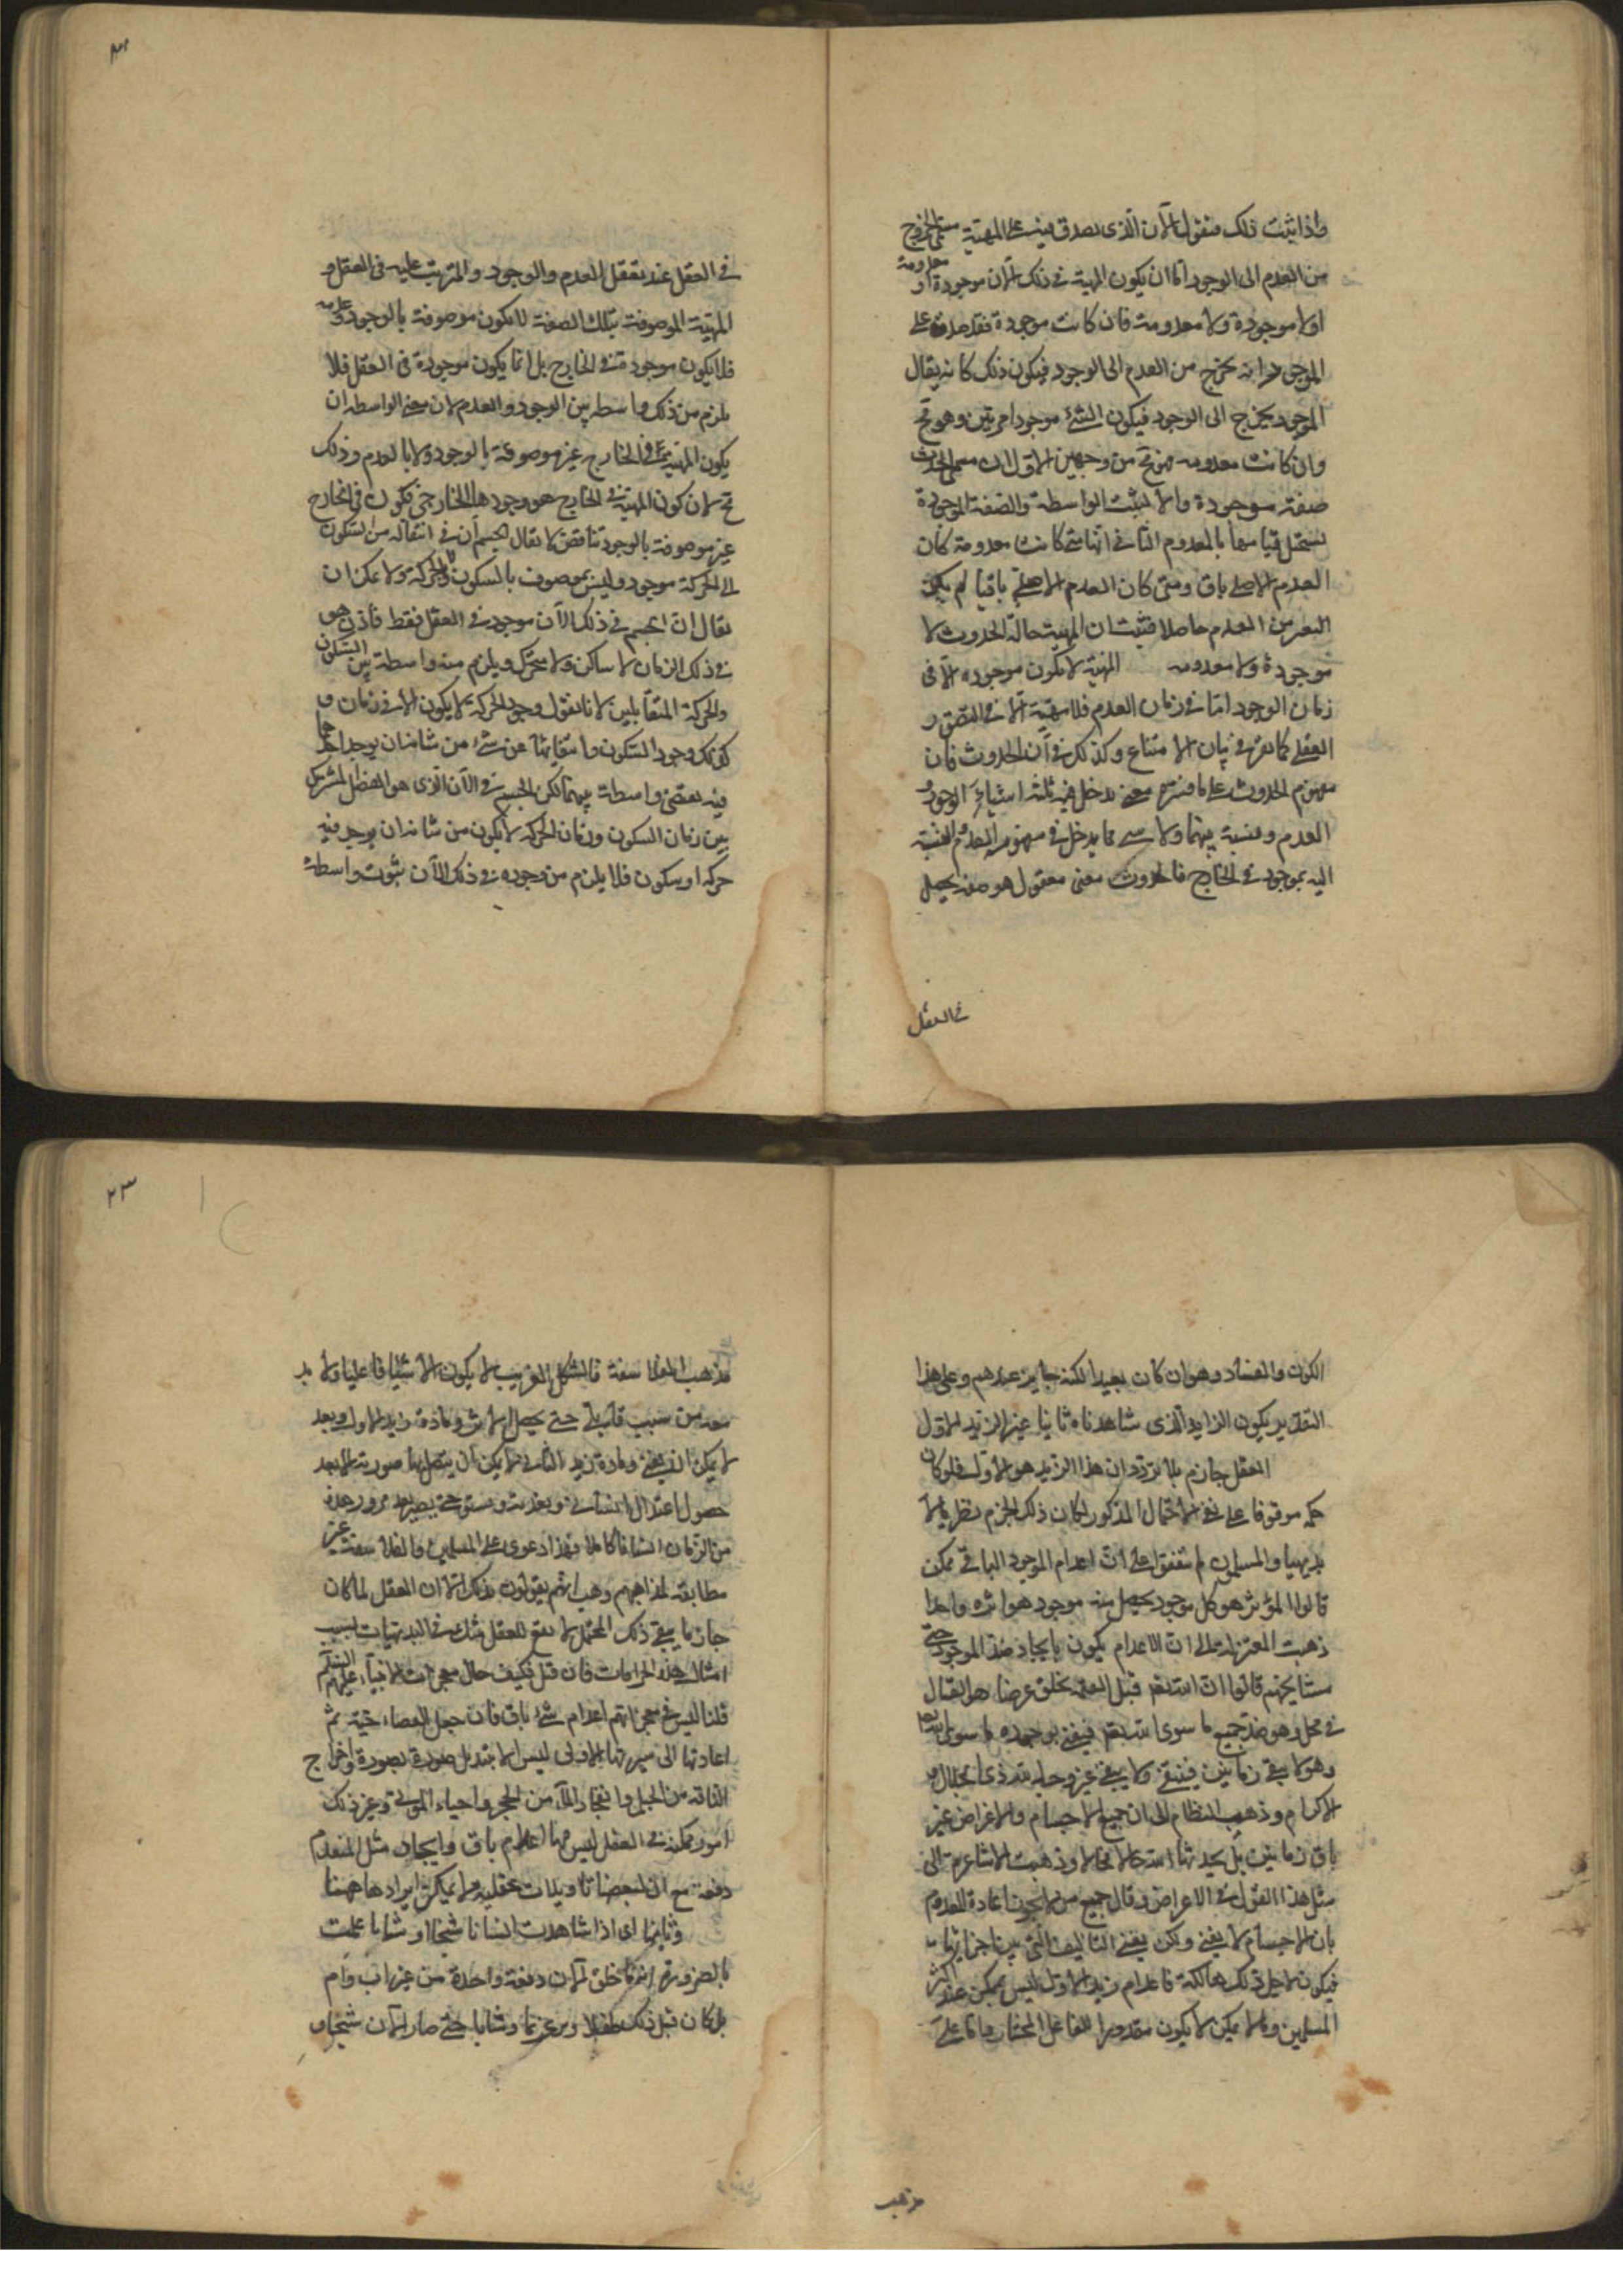 واذا ثبت ذلك فنقول الآن الذى يصدق فيه على المهية مسمى الخروج
من العدم الى الوجود اما ان يكون المهية فى ذلك الآن موجودة او معدومة
اولا موجودة ولا معدومة فان كانت موجودة فقد صدق على
الموجود انه يخرج من العدم الى الوجود فيكون ذلك كانه يقال
الموجود يخرج الى الوجود فيكون الشئ موجودا مرتين وهو مح
وان كانت معدومة فهو مح من وجهين الاول ان مسمى الحدوث
صفة موجودة والا لثبت الواسطة والصفة الموجودة
يستحيل قيامها بالمعدوم الثانى انها متى كانت معدومة كان
العدم الاصلى باق ومتى كان العدم الاصلى باقيا لم يكن
التغير من العدم حاصلا فثبت ان المهية حالة الحدوث لا
موجودة ولا معدومة المهية لا يكون موجوده الا فى
زمان الوجود اما فى زمان العدم فلا مهية الا فى التصور
العقلى كما مر فى بيان الامتناع وكذلك فى آن الحدوث فان
مفهوم الحدوث على ما فسره معنى يدخل فيه ثلثة اشياء الوجود و
العدم ونسبة بينهما ولا شى مما يدخل فى مفهومه العدم او النسبة
اليه بموجود فى الخارج فالحدوث معنى معقول هو صفة يحصل
فى العقل
٢٢
فى العقل عند تعقل العدم والوجود والمترتب عليه فى العقل و
المهية الموصوفة بتلك الصفة لا يكون موصوفة بالوجود وعدمه
فلا يكون موجودة فى الخارج بل انما يكون موجودة فى العقل فلا
يلزم من ذلك واسطه بين الوجود والعدم لان معنى الواسطه ان
يكون المهية فى الخارج غير موصوفة بالوجود ولا بالعدم وذلك
مح لان كون المهية فى الخارج هو وجودها الخارجى فكون فى الخارج
غير موصوفة بالوجود تناقض لا يقال الجسم آن فى انتقاله من السكون
الى الحركة موجود وليس بموصوف بالسكون والحركة ولا يمكن ان
يقال ان الجسم فى ذلك الآن موجود فى العقل فقط فاذن هو
فى ذلك الزمان لا ساكن ولا متحرك ويلزم منه واسطة بين السكون
والحركة المتقابلين لانا نقول وجود الحركة لا يكون الا فى زمان و
كذلك وجود السكون وامتيازهما عن شئ من شانه ان يوجد احدهما
فيه يقتضى واسطة بينهما لكن الجسم فى الآن الذى هو الفصل المشترك
بين زمان السكون وزمان الحركة لا يكون من شانه ان يوجد فيه
حركة او سكون فلا يلزم من وجوده فى ذلك الآن ثبوت واسطة
الكون والفساد وهو ان كان بعيدا لكنه جايز عندهم وعلى هذا
التقدير يكون الزايد الذى شاهدناه ثانيا غير الزيد الاول
العقل جازم بلا تردد ان هذا الزيد هو الاول فلو كان
حكمه موقوفا على نفى الاحتمال المذكور لكان ذلك الجزم نظريا لا
بديهيا والمسلمون لم يتفقوا على ان اعدام الموجود الباقى ممكن
قالوا المؤثر هو كل موجود يحصل منه موجود هو اثره ولهذا
ذهبت المعتزلة الى ان الاعدام يكون بايجاد ضد الموجود حتى
مشايخهم قالوا ان الله تعالى قبل القيمة يخلق عرضا هو الفناء
فى محل وهو ضد جميع ما سوى الله تعالى فيفنى بوجوده ما سوى الله تعالى
وهو لا يبقى زمانين فيفنى ولا يبقى غير وجه الله ذى الجلال و
الاكرام وذهب النظام الى ان جميع الاجسام والاعراض غير
باق زمانين بل يحدثها الله حالا فحالا وذهبت الاشاعرة الى
مثل هذا القول فى الاعراض وقال جميع من لا يجوز اعادة المعدوم
بان الاجسام لا يفنى ولكن يفنى التاليف التى بين اجزائها
فيكون لاجل ذلك هالكة فاعدام زيد الاول ليس بممكن عند اكثر
المسلمين وما لا يمكن لا يكون مقدورا للفاعل المختار واما على
مذهب
٢٣
مذهب الفلاسفة فالشكل الغريب لا يكون الا شيئا فاعليا ولا بد
معه من سبب قابلى حتى يحصل الاثر ومادة زيد الاول وبعد
لا يمكن ان يفنى ومادة زيد الثانى لا يمكن ان يتصل بها صورته الا بعد
حصول اعتدال انسانى وتغذيته ونمو حتى يصير بعد مرور هذه
من الزمان انسانا كاملا فهذا دعوى على المسلمين والفلاسفة غير
مطابقة لمذاهبهم وهب انهم يقولون بذلك الا ان العقل لما كان
جازما بنفى ذلك المحتمل لا يقع للعقل شك فى البديهيات بسبب
امثال هذه الخرافات فان قيل فكيف حال معجزات الانبياء عليهم السلم
قلنا ليس فى معجزاتهم اعدام شئ باق فان جعل العصاء حية ثم
اعادتها الى سيرتها الاولى ليس الا تبديل صورة بصورة واخراج
الناقة من الجبل وانفجار الماء من الحجر واحياء الموتى وغير ذلك
امور ممكنة فى العقل ليس فيها اعدام باق وايجاد مثل المنعدم
دفعة مع ان لبعضها تاويلات عقلية ولا يمكن ايرادها ههنا
وثانيها اى اذا شاهدت انسانا شيخا او شابا علمت
بالضرورة انه ما خلق الآن دفعة واحدة من غير اب وام
بل كان قبل ذلك طفلا ومترعرعا وشابا حتى صار الآن شيخا و